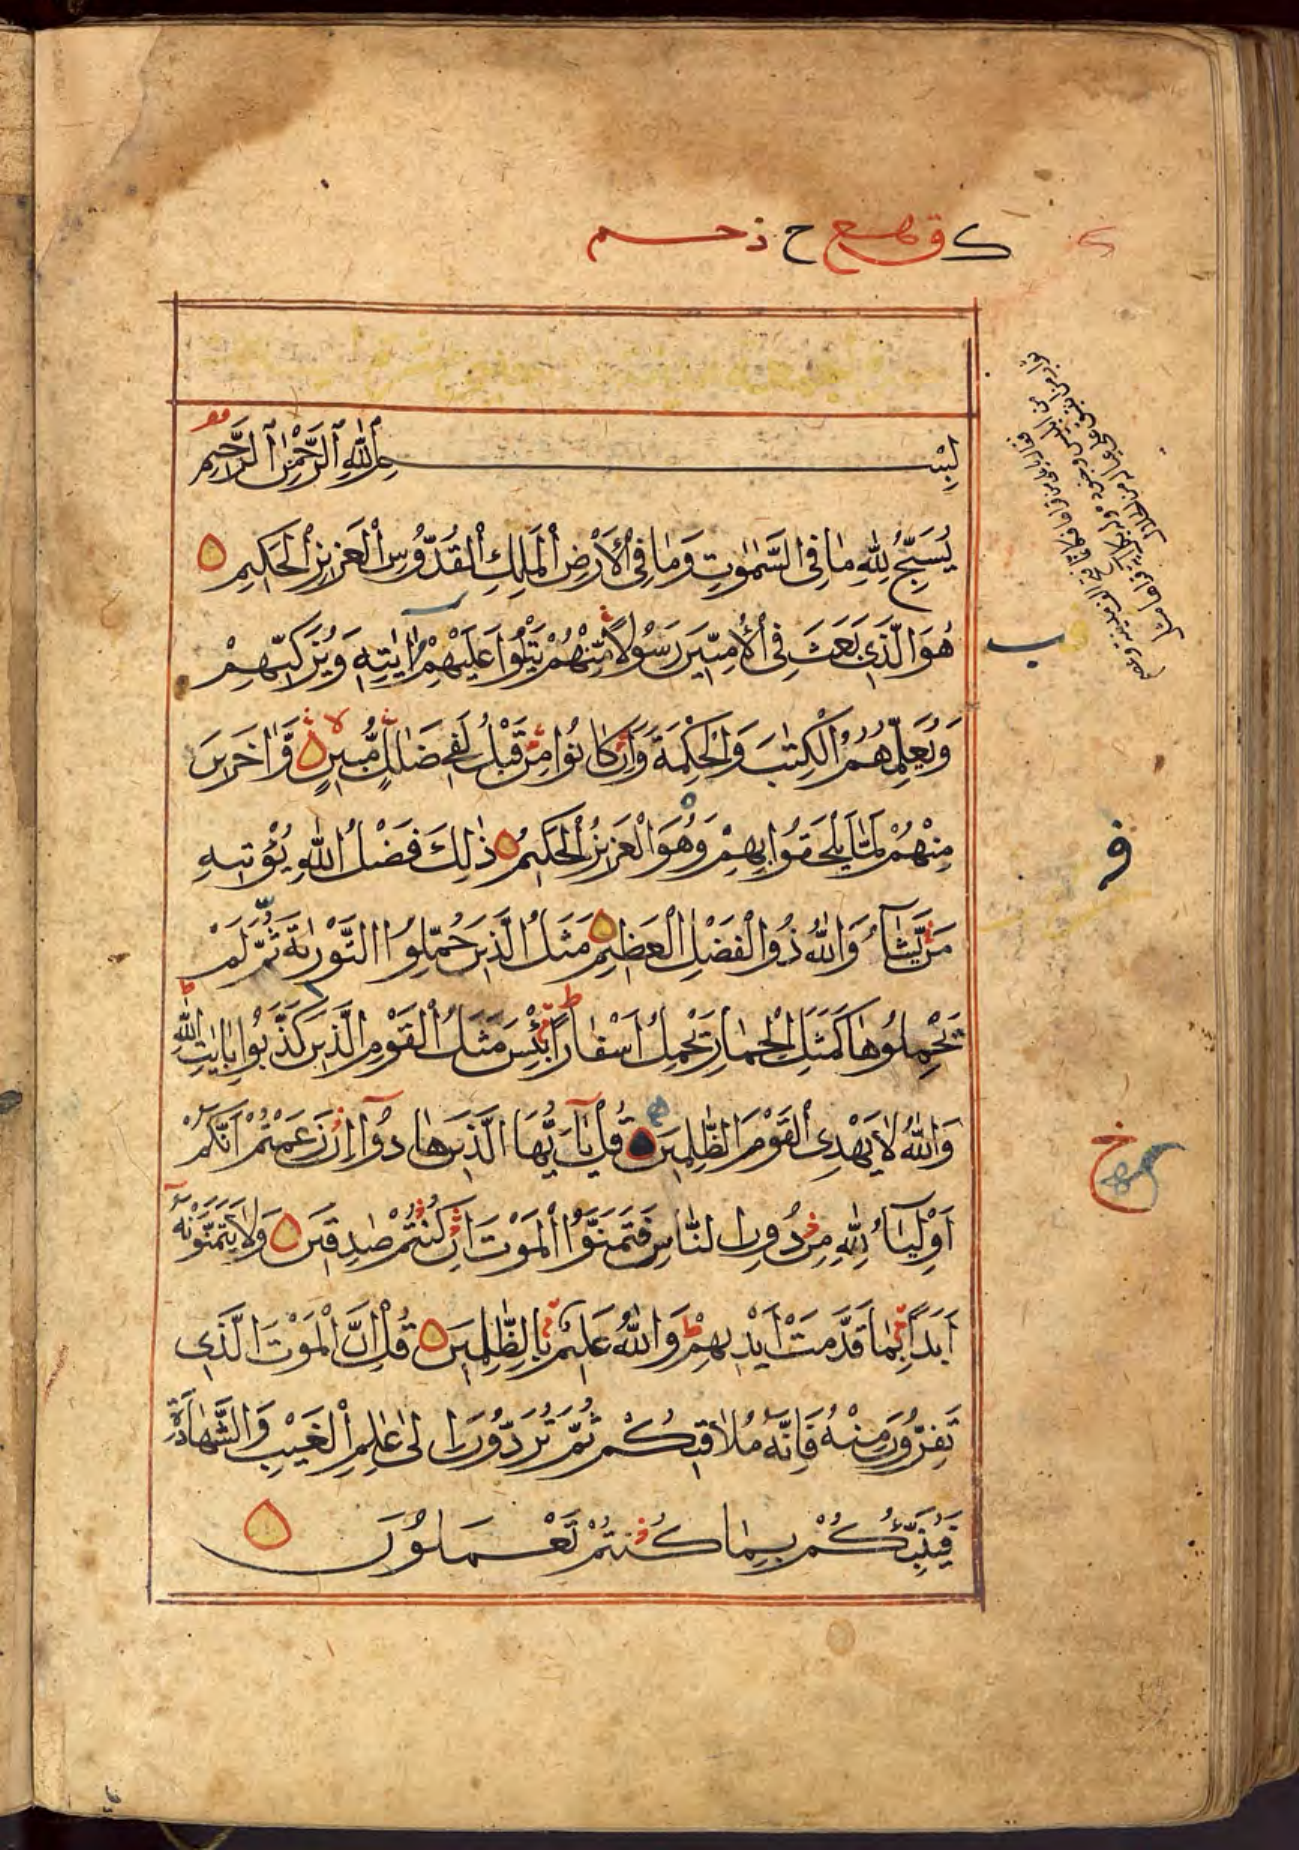 بِسْمِ اللّٰهِ الرَّحْمٰنِ الرَّحِيمِ
يُسَبِّحُ لِلّٰهِ مَا فِى السَّمٰوٰتِ وَمَا فِى الْاَرْضِ الْمَلِكِ الْقُدُّوسِ الْعَزِيزِ الْحَكِيمِ
هُوَ الَّذِى بَعَثَ فِى الْاُمِّيّٖنَ رَسُولًا مِّنْهُمْ يَتْلُوا عَلَيْهِمْ اٰيٰتِهٖ وَيُزَكِّيهِمْ
وَيُعَلِّمُهُمُ الْكِتٰبَ وَالْحِكْمَةَ وَاِنْ كَانُوا مِنْ قَبْلُ لَفِى ضَلٰلٍ مُّبِينٍ وَّاٰخَرِينَ
مِنْهُمْ لَمَّا يَلْحَقُوا بِهِمْ وَهُوَ الْعَزِيزُ الْحَكِيمُ ذٰلِكَ فَضْلُ اللّٰهِ يُؤْتِيهِ
مَنْ يَّشَآءُ وَاللّٰهُ ذُو الْفَضْلِ الْعَظِيمِ مَثَلُ الَّذِينَ حُمِّلُوا التَّوْرٰىةَ ثُمَّ لَمْ
يَحْمِلُوهَا كَمَثَلِ الْحِمَارِ يَحْمِلُ اَسْفَارًا بِئْسَ مَثَلُ الْقَوْمِ الَّذِينَ كَذَّبُوا بِاٰيٰتِ اللّٰهِ
وَاللّٰهُ لَا يَهْدِى الْقَوْمَ الظّٰلِمِينَ قُلْ يٰٓاَيُّهَا الَّذِينَ هَادُوٓا اِنْ زَعَمْتُمْ اَنَّكُمْ
اَوْلِيَآءُ لِلّٰهِ مِنْ دُونِ النَّاسِ فَتَمَنَّوُا الْمَوْتَ اِنْ كُنْتُمْ صٰدِقِينَ وَلَا يَتَمَنَّوْنَهٗٓ
اَبَدًا بِمَا قَدَّمَتْ اَيْدِيهِمْ وَاللّٰهُ عَلِيمٌ بِالظّٰلِمِينَ قُلْ اِنَّ الْمَوْتَ الَّذِى
تَفِرُّونَ مِنْهُ فَاِنَّهٗ مُلَاقِيكُمْ ثُمَّ تُرَدُّونَ اِلٰى عٰلِمِ الْغَيْبِ وَالشَّهَادَةِ
فَيُنَبِّئُكُمْ بِمَا كُنْتُمْ تَعْمَلُونَ